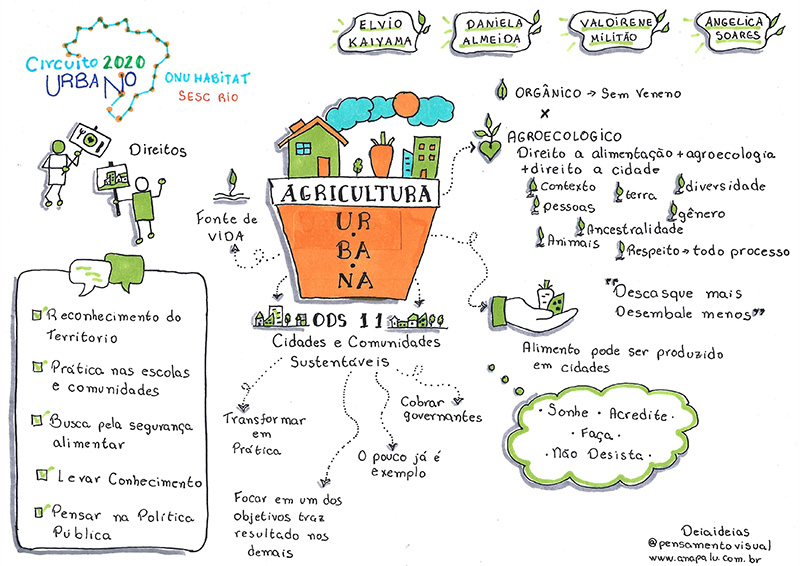 Circuito 2020
URBANO
ONU HABITAT
SESC RIO
ELVIO
KAIYAMA
DANIELA
ALMEIDA
VALDIRENE
MILITÃO
ANGELICA
SOARES
Direitos
Fonte de
VIDA
AGRICULTURA
UR
BA
NA
ORGÂNICO → Sem Veneno
x
AGROECOLOGICO
Direito a alimentação + agroecologia
+ direito a cidade
contexto
terra
diversidade
pessoas
gênero
Ancestralidade
Animais
Respeito → todo processo
"Descasque mais
Desembale menos"
Alimento pode ser produzido
em cidades
• Sonhe • Acredite
• Faça
• Não Desista •
ODS 11
Cidades e Comunidades
Sustentáveis
Transformar
em
Prática
Focar em um dos
objetivos traz
resultado nos
demais
O pouco já é
exemplo
Cobrar
governantes
Reconhecimento do
Territorio
Prática nas escolas
e comunidades
Busca pela segurança
alimentar
Levar Conhecimento
Pensar na Política
Pública
Deiaideias
@pensamentovisual
www.anapalu.com.br